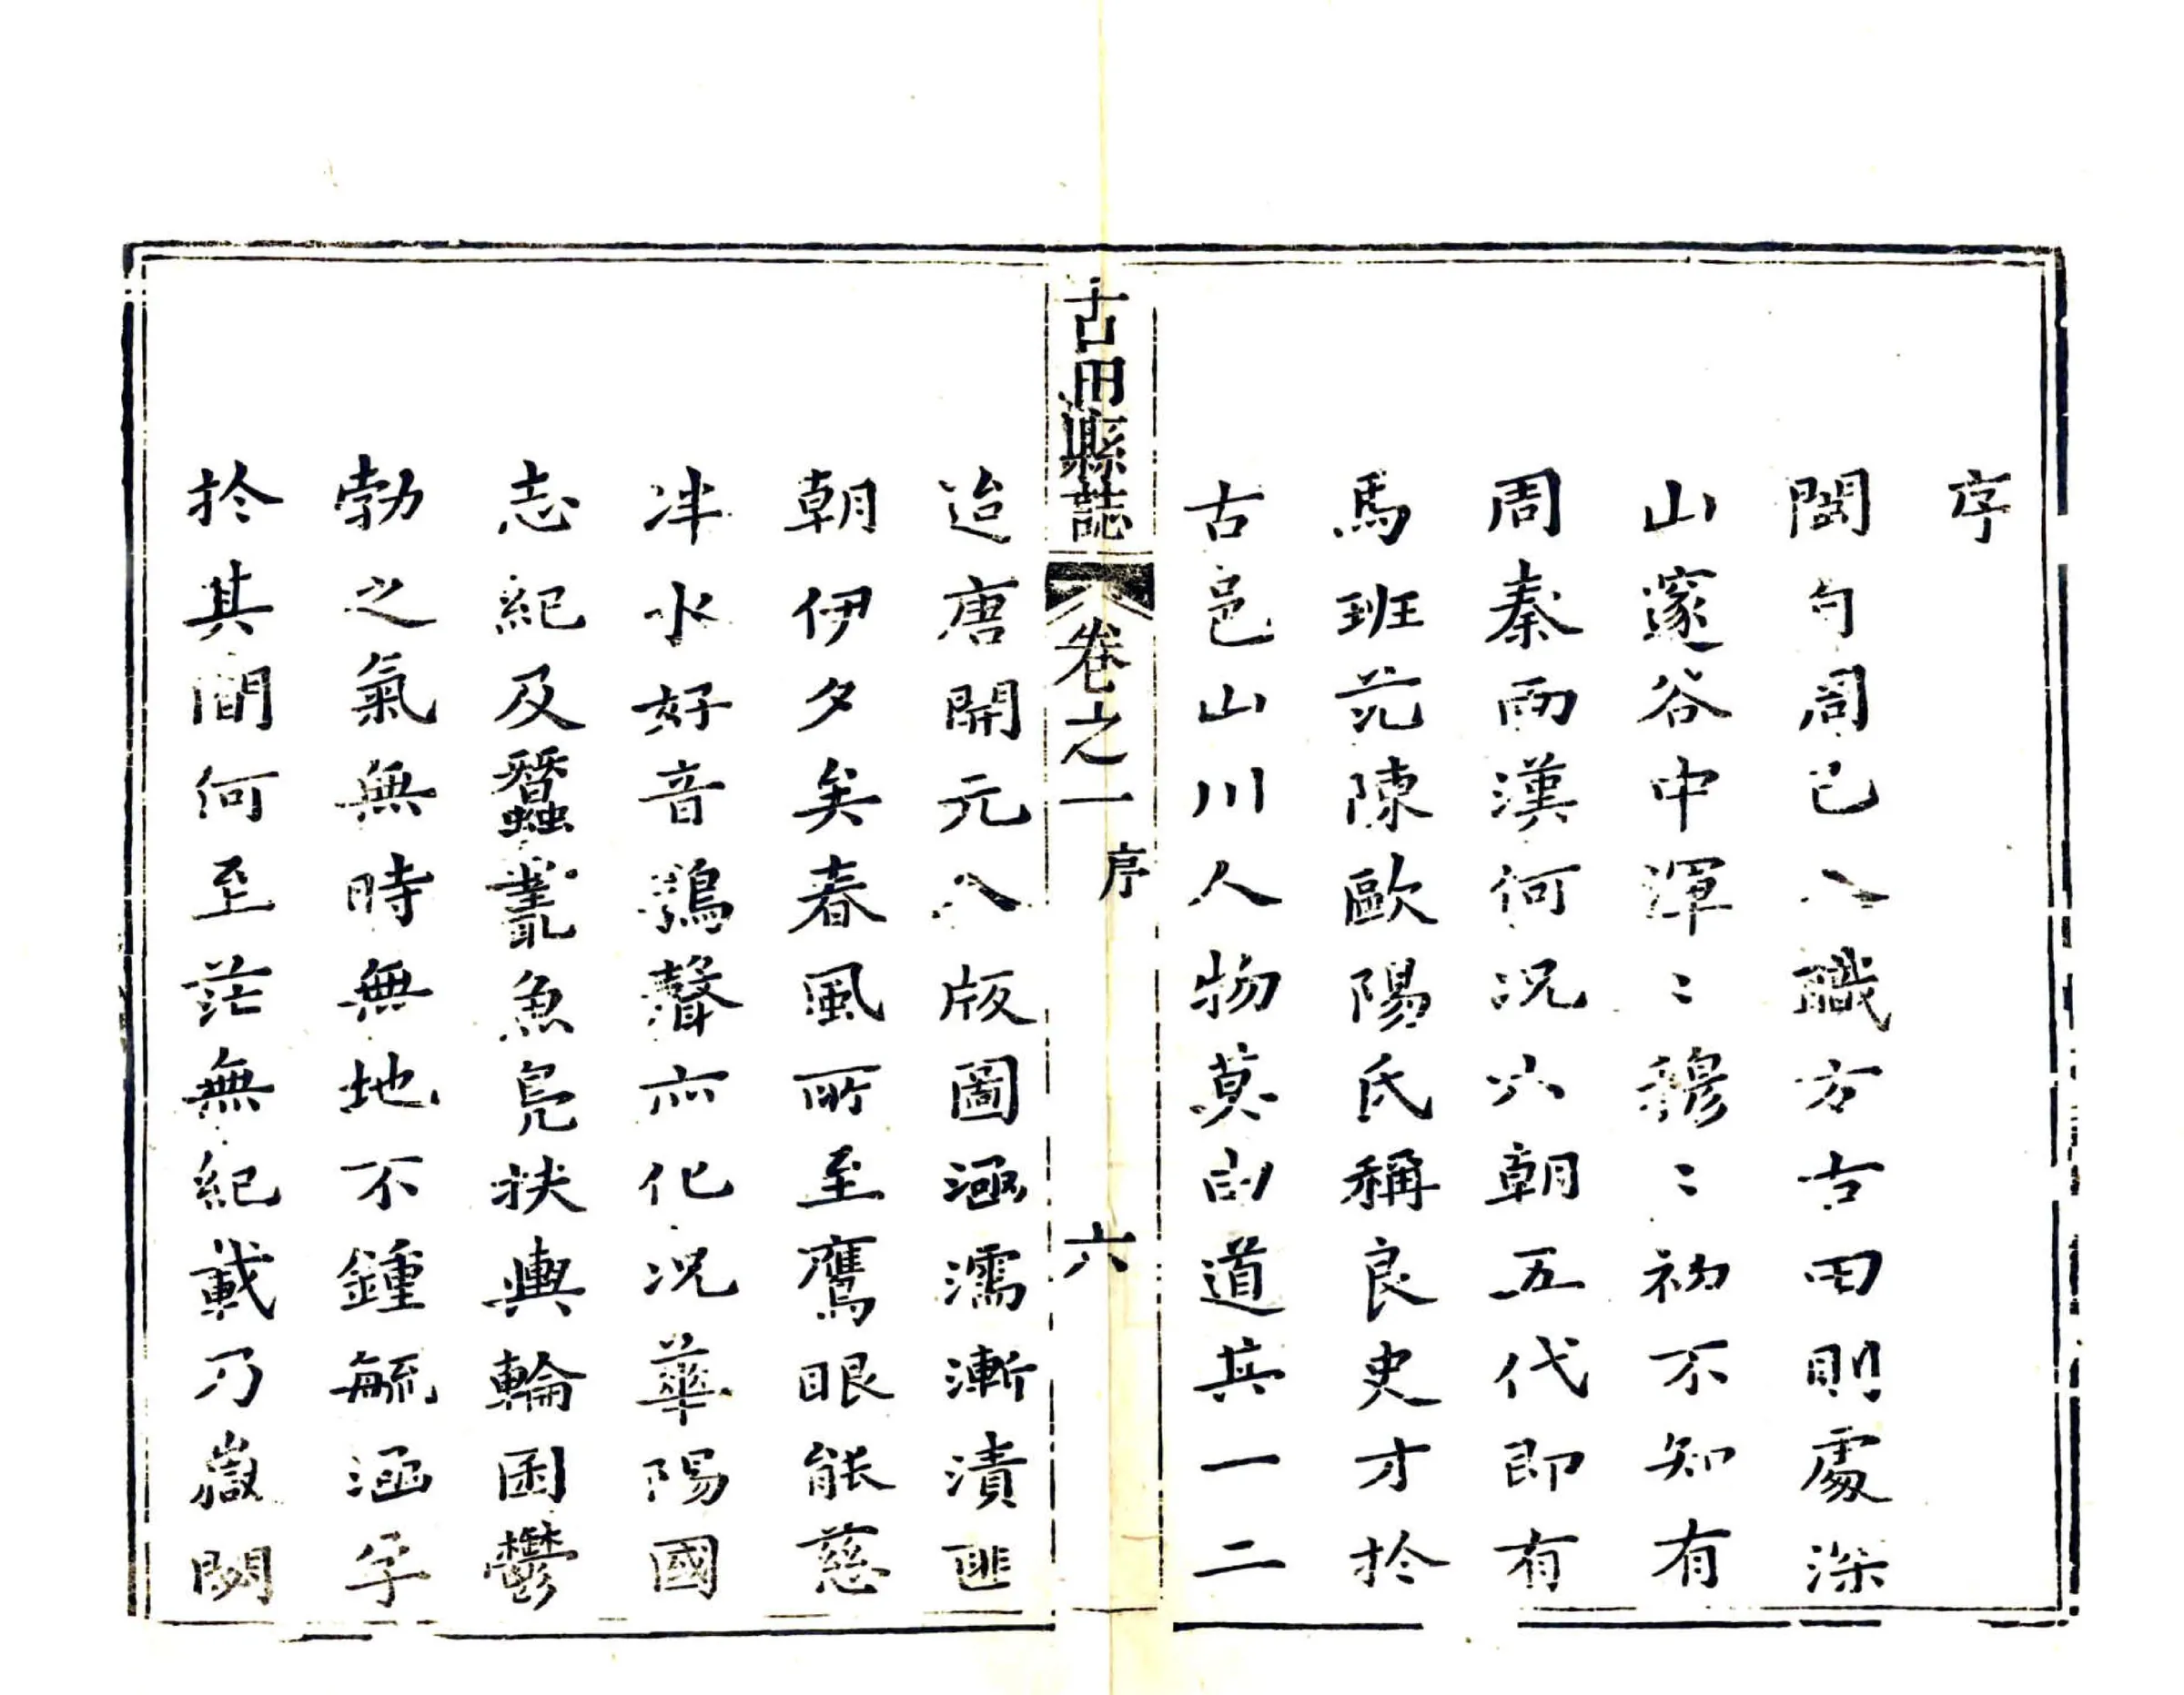 序
閩自周已入職方古田則處深
山邃谷中渾〻穆〻初不知有
周秦兩漢何況六朝五代即有
馬班范陳歐陽氏稱良史才於
古邑山川人物莫由道其一二
古田縣誌 卷之一 序 六
迨唐開元入版圖涵濡漸漬匪
朝伊夕矣春風所至鷹眼能慈
泮水好音鴞聲亦化況華陽國
志紀及蠶叢魚鳧扶輿輪囷鬱
勃之氣無時無地不鍾毓涵孕
於其間何至茫無紀載乃嶽閟